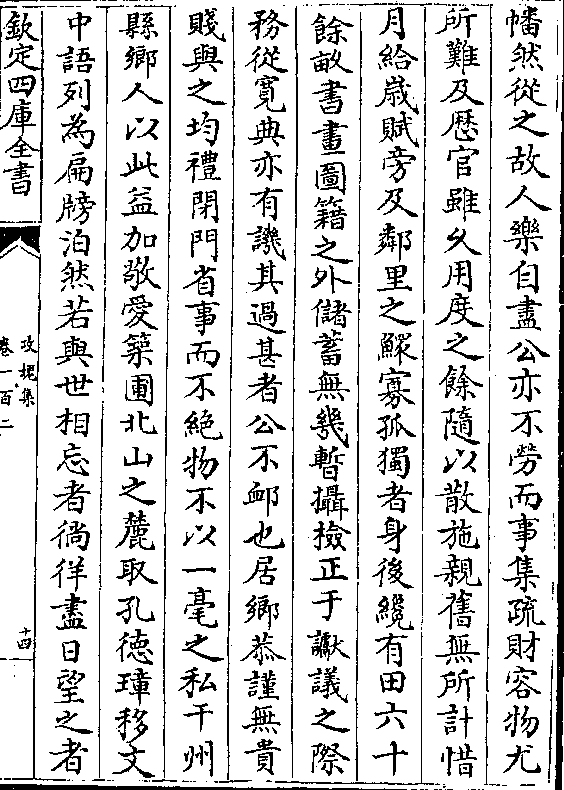 幡然從之故人樂自盡公亦不勞而事集疏財容物尤
所難及歴官雖乆用度之餘隨以散施親舊無所計惜
月給嵗賦旁及鄰里之鰥寡孤獨者身後纔有田六十
餘畝書畫圖籍之外儲蓄無㡬暫攝檢正于讞議之際
務從寛典亦有譏其過甚者公不䘏也居鄉恭謹無貴
賤與之均禮閉門省事而不絶物不以一毫之私干州
縣鄉人以此益加敬愛築圃北山之麓取孔德璋移文
中語列為扁牓泊然若與世相忘者徜徉盡日望之者
欽定四庫全書
攻媿集
卷一百二
十四